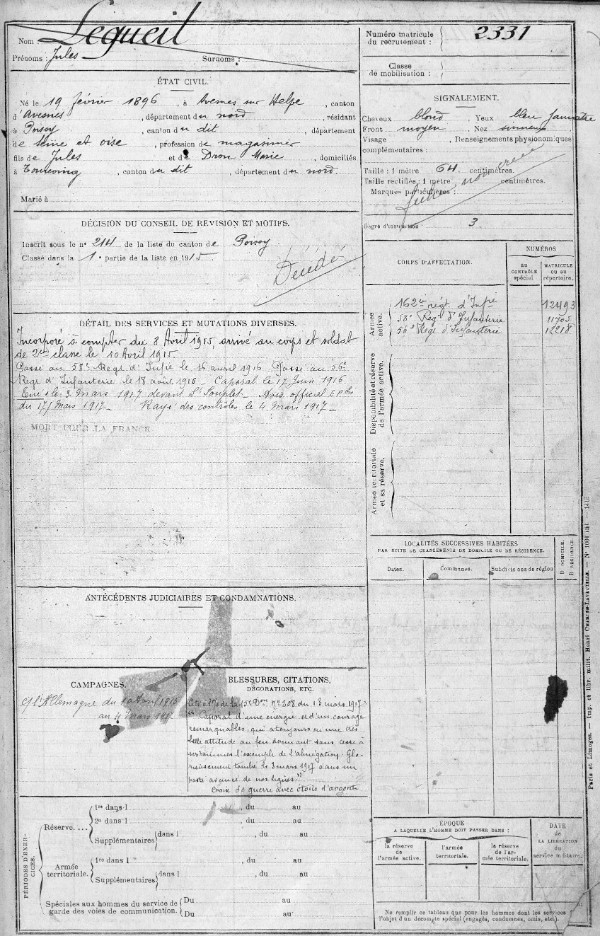 Nom : Legueil
Prénoms : Jules
Surnoms :
Numéro matricule du recrutement : 2331
Classe de mobilisation :
ÉTAT CIVIL.
Né le 19 février 1896, à Avesnes sur Helpe, canton
d'Avesnes, département du nord, résidant
à Poissy, canton du dit, département
de Seine et Oise, profession de magasinier
fils de Jules et de Dron Marie, domiciliés
à Tourcoing, canton du dit, département du nord.
Marié à
SIGNALEMENT.
Cheveux blond Yeux bleu jaunâtre
Front moyen Nez sinueux
Visage Renseignements physionomiques
complémentaires :
Taille : 1 mètre 64 centimètres.
Taille rectifiée : 1 mètre centimètres.
Marques particulières :
Degré d'instruction 3
DÉCISION DU CONSEIL DE RÉVISION ET MOTIFS.
Inscrit sous le no 214 de la liste du canton de Poissy
Classé dans la 1e partie de la liste en 1915
Décédé
DÉTAIL DES SERVICES ET MUTATIONS DIVERSES.
Incorporé à compter du 8 Avril 1915 arrivé au corps et soldat
de 2eme classe le 10 Avril 1915.
Passé au 58e Régt d'Infie le 16 avril 1916 Passé au 56e
Régt d'Infanterie le 18 août 1916 Caporal le 17 Juin 1916
Tué le 3 mars 1917 devant St Souplet Avis officiel
du 17 mars 1917 Rayé des contrôles le 4 mars 1917
MORT POUR LA FRANCE.
CORPS D'AFFECTATION.
NUMÉROS
AU CONTRÔLE spécial
MATRICULE OU DU répertoire.
Armée active.
162e régt d'Infie 12493
56e Régt d'Infanterie 11705
56e Régt d'Infanterie
Disponibilité et réserve de l'armée active.
Armée territoriale et sa réserve.
LOCALITÉS SUCCESSIVES HABITÉES
PAR SUITE DE CHANGEMENTS DE DOMICILE OU DE RÉSIDENCE.
Dates.
Communes.
Subdivisions de région
D. DOMICILE.
R. RÉSIDENCE.
ANTÉCÉDENTS JUDICIAIRES ET CONDAMNATIONS.
CAMPAGNES.
C/ l'Allemagne du
au 4 mars
BLESSURES, CITATIONS, DÉCORATIONS, ETC.
du 18 mars 1917.
"Caporal d'une énergie et d'un courage
remarquables, qui a toujours eu une très
belle attitude au feu donnant sans cesse à
l'exemple de l'abnégation. Glo-
rieusement tombé le 3 mars 1917 dans un
poste avancé de nos lignes"
Croix de guerre avec étoile d'argent
PÉRIODES D'EXERCICES.
Réserve...
1re dans l , du au
2e dans l , du au
Supplémentaires dans l , du au
, du au
Armée territoriale.
1re dans l , du au
Supplémentaires dans l , du au
, du au
Spéciales aux hommes du service de garde des voies de communication.
Du au
Du au
ÉPOQUE
À LAQUELLE L'HOMME DOIT PASSER DANS :
la réserve de l'armée active.
l'armée territoriale.
la réserve de l'armée territoriale.
DATE DE LA LIBÉRATION du service militaire.
Ne remplir ce tableau que pour les hommes dont les services
font l'objet d'un décompte spécial (engagés, condamnés, omis, etc.).
Paris et Limoges. — Imp. et libr. milit. Henri Charles-Lavauzelle.